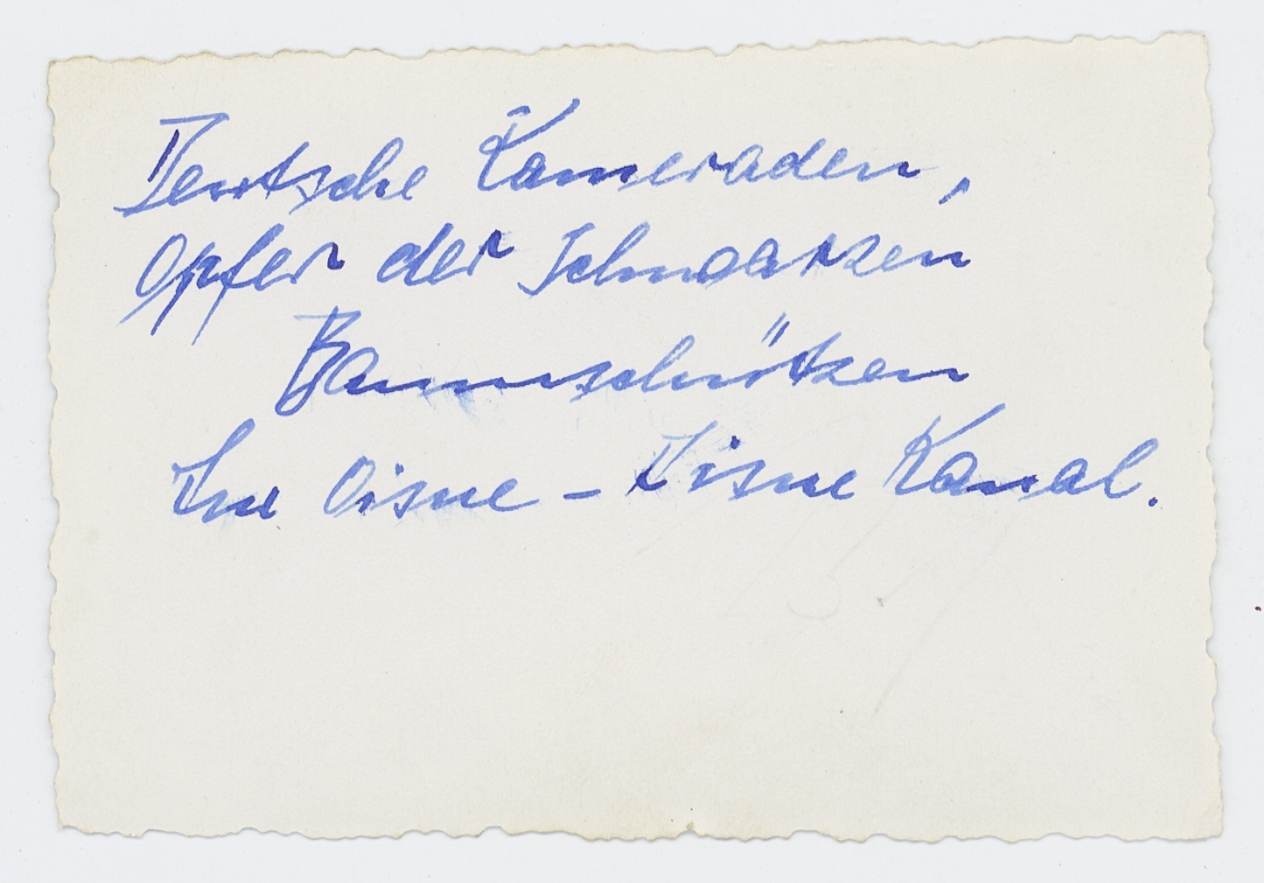 Deutsche Kameraden,
Opfer der Schwarzen
Baumschützen
Am Oisne - Aisne Kanal.